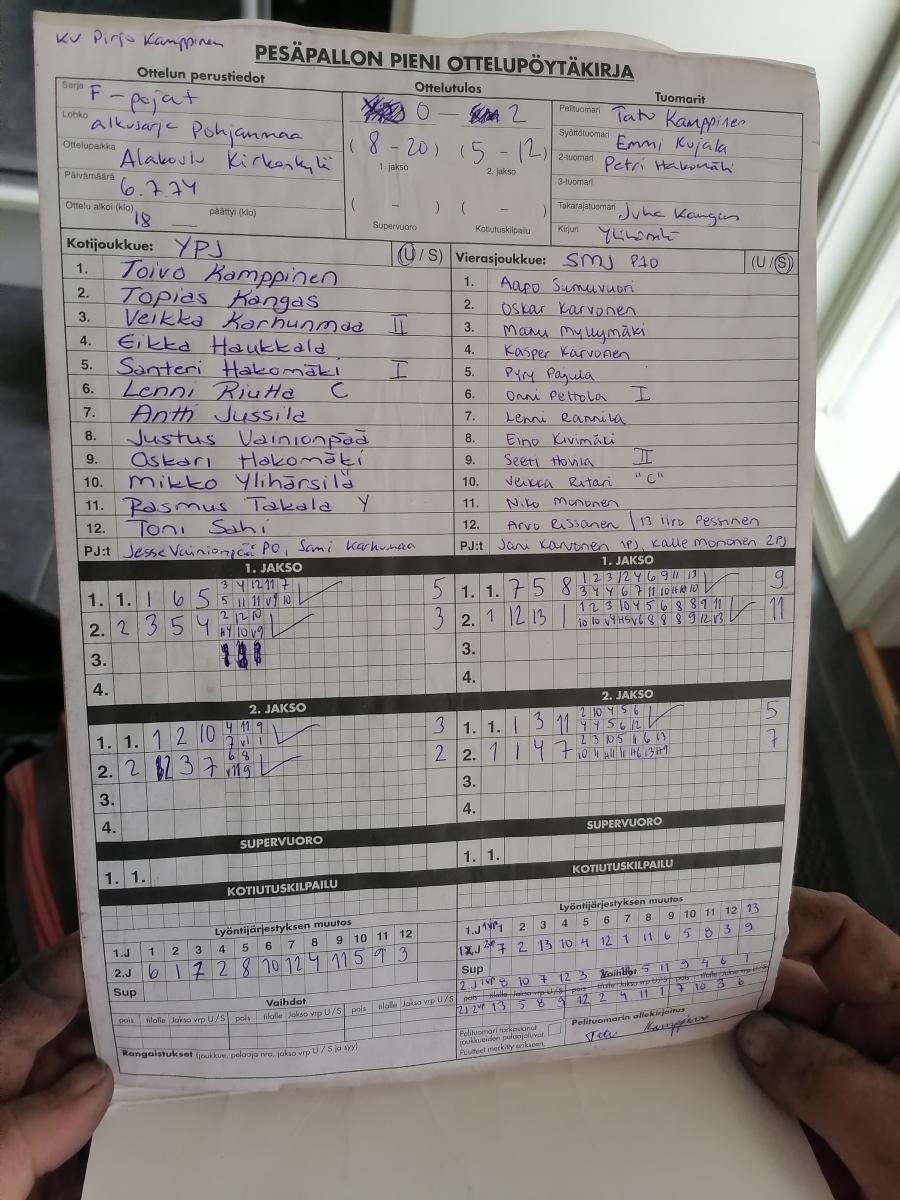 KV Pirjo Kamppinen
PESÄPALLON PIENI OTTELUPÖYTÄKIRJA
Ottelun perustiedot
Sarja F-pojat
Lohko alkusarja Pohjanmaa
Ottelupaikka Alakoulu Kirkonkylä
Päivämäärä 6.7.24
Ottelu alkoi (klo) 18 päättyi (klo)
Ottelutulos
0 - 2
(8 - 20) (5 - 12)
1. jakso 2. jakso
( - ) ( - )
Supervuoro Kotiutuskilpailu
Tuomarit
Pelituomari Tatu Kamppinen
Syöttötuomari Emmi Kujala
2-tuomari Petri Hakomäki
3-tuomari
Takarajatuomari Juha Kangas
Kirjuri
Kotijoukkue: YPJ (U / S)
1. Toivo Kamppinen
2. Topias Kangas
3. Veikka Karhunmaa II
4. Eikka Haukkala
5. Santeri Hakomäki I
6. Lenni Riutta C
7. Antti Jussila
8. Justus Vainionpää
9. Oskari Hakomäki
10. Mikko Ylihärsilä
11. Rasmus Takala Y
12. Toni Sahi
PJ:t Jesse Vainionpää PO, Sami Karhumaa
Vierasjoukkue: SMJ P10 (U / S)
1. Aapo Sumuvuori
2. Oskar Karvonen
3. Manu Myllymäki
4. Kasper Karvonen
5. Pyry Pajula
6. Onni Peltola I
7. Lenni Rannila
8. Eino Kivimäki
9. Seeti Hovila II
10. Veikka Ritari "C"
11. Niko Mononen
12. Arvo Rissanen /13 Iiro Pesonen
PJ:t Jani Karvonen 1PJ, Kalle Mononen 2PJ
1. JAKSO
3 4 12 11 7
1. 1. 1 6 5 5
5 11 11 v9 10
2 12 10
2. 2 3 5 4 3
H4 10 v9
3.
4.
1. JAKSO
1 2 3 12 4 6 9 11 13
1. 1. 7 5 8 9
3 4 4 6 7 11 10 H10 10
1 2 3 10 4 5 6 8 8 9 11
2. 1 12 13 1 11
10 10 v4 H5 v6 8 8 8 9 12 v13
3.
4.
2. JAKSO
4 11 9
1. 1. 1 2 10 3
7 v1 1
6 8
2. 2 12 3 7 2
v11 9
3.
4.
2. JAKSO
2 10 4 5 6
1. 1. 1 3 11 5
4 4 5 6 12
2 3 10 5 11 6 13
2. 1 1 4 7 7
3.
4.
SUPERVUORO
1. 1.
KOTIUTUSKILPAILU
SUPERVUORO
1. 1.
KOTIUTUSKILPAILU
Lyöntijärjestyksen muutos
1.J 1 2 3 4 5 6 7 8 9 10 11 12
2.J 6 1 7 2 8 10 12 4 11 5 9 3
Sup
Vaihdot
pois tilalle Jakso vrp U / S pois tilalle Jakso vrp U / S pois tilalle Jakso vrp U / S
Rangaistukset (joukkue, pelaaja nro, jakso vrp U / S ja syy)
Lyöntijärjestyksen muutos
1.J 1vp 1 2 3 4 5 6 7 8 9 10 11 12 13
J 2vp 7 2 13 10 4 12 1 11 6 5 8 3 9
Sup
2.J 1vp 8 10 7 12 3 5 11 9 4 6 1
Vaihdot
pois tilalle Jakso vrp U / S pois tilalle Jakso vrp U / S
2J 2vp 13 5 8 9 12 2 4 11 1 7 10 3 6
Pelituomari tarkastanut
joukkueiden pelaajaluvat.
Puutteet merkitty erikseen.
Pelituomarin allekirjoitus
Tatu Kamppinen